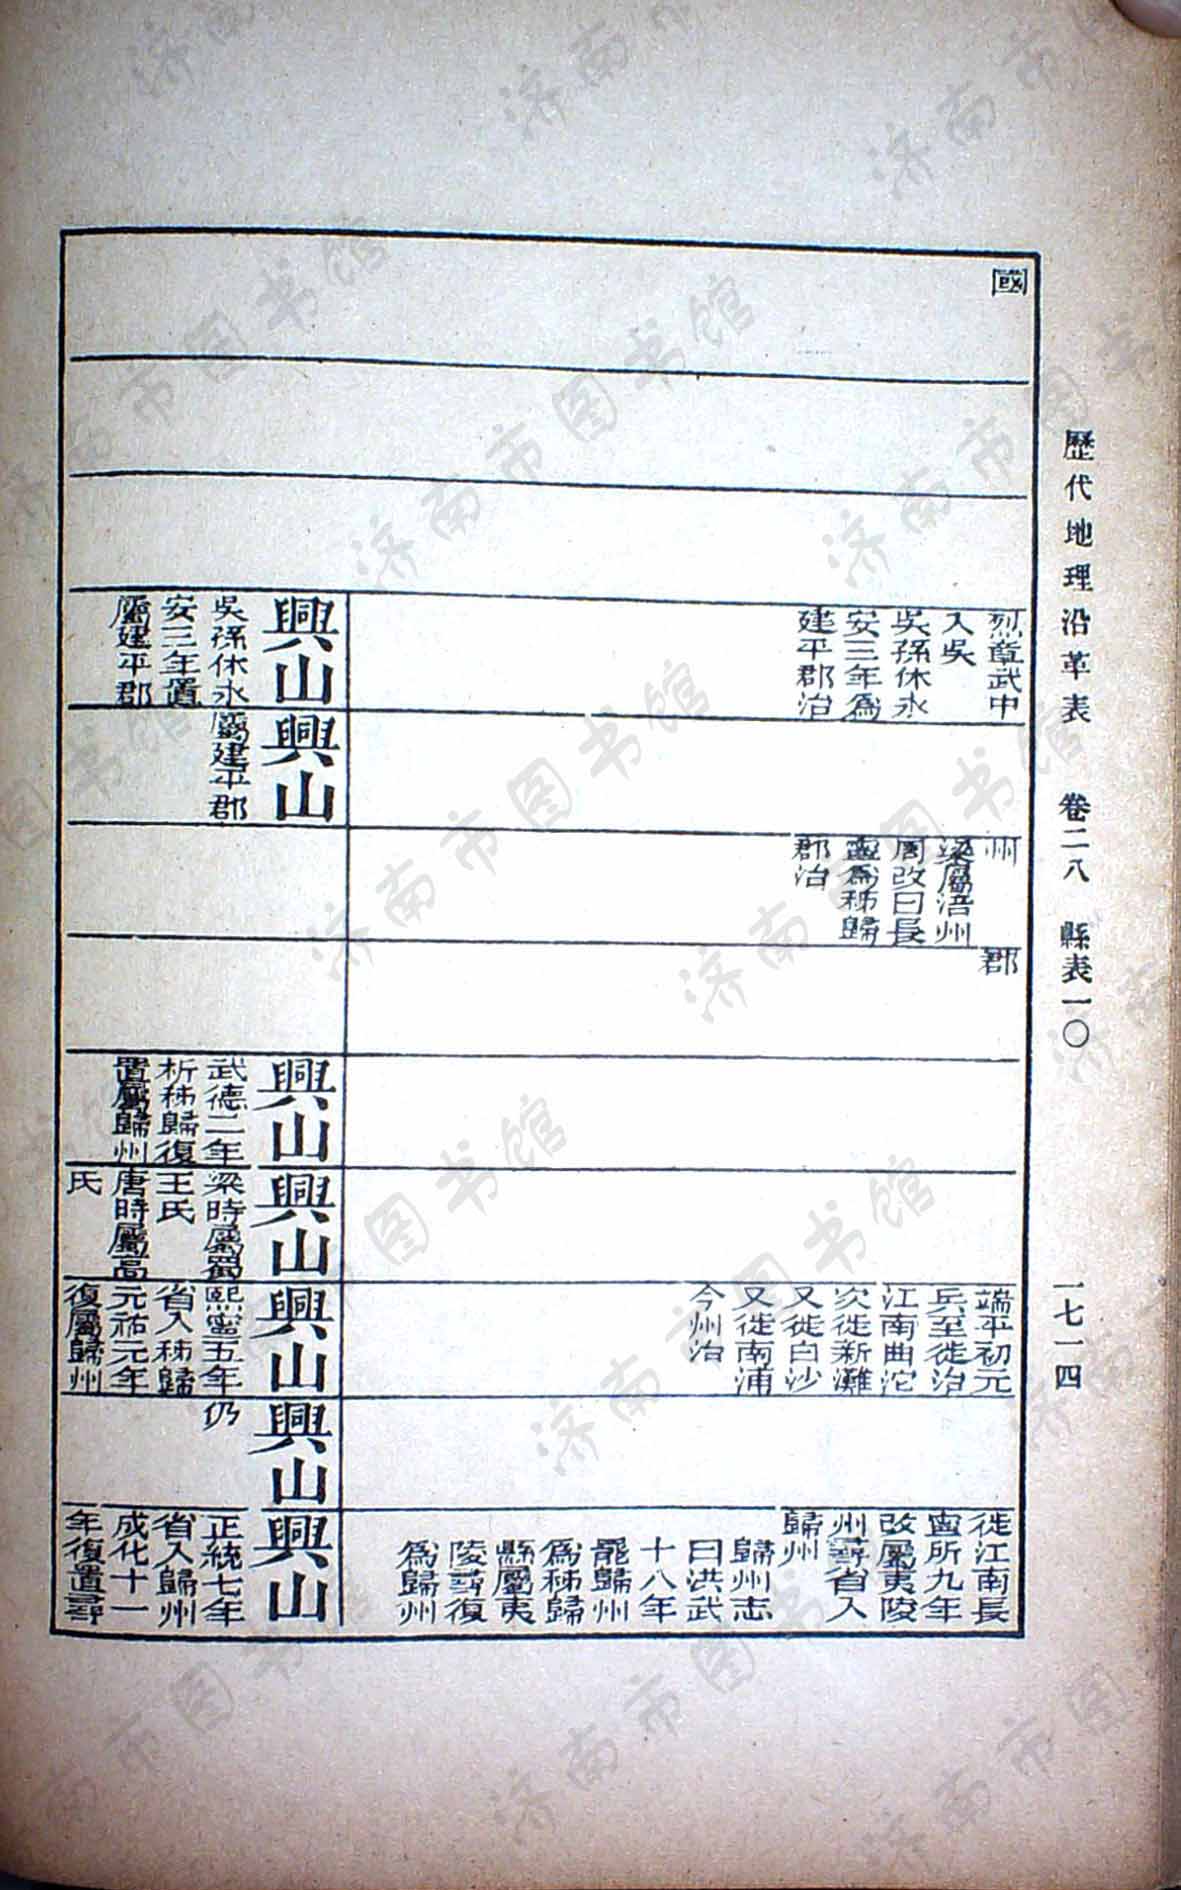 歷代地理沿革表　卷二八　縣表一〇　一七一四
國
烈章武中
入吳
吳孫休永
安三年爲
建平郡治
州
梁屬涪州
周改曰長
寧爲秭歸
郡治
郡
端平初元
兵至徙治
江南曲沱
次徙新灘
又徙白沙
又徙南浦
今州治
徙江南長
寧所九年
改屬夷陵
州尋省入
歸州
歸州志
曰洪武
十八年
罷歸州
爲秭歸
縣屬夷
陵尋復
爲歸州
興山
吳孫休永
安三年置
屬建平郡
興山
屬建平郡
興山
武德二年
析秭歸復
置屬歸州
興山
梁時屬蜀
王氏
唐時屬高
氏
興山
熙寧五年
省入秭歸
元祐元年
復屬歸州
興山
仍
興山
正統七年
省入歸州
成化十一
年復置尋
济南市图书馆